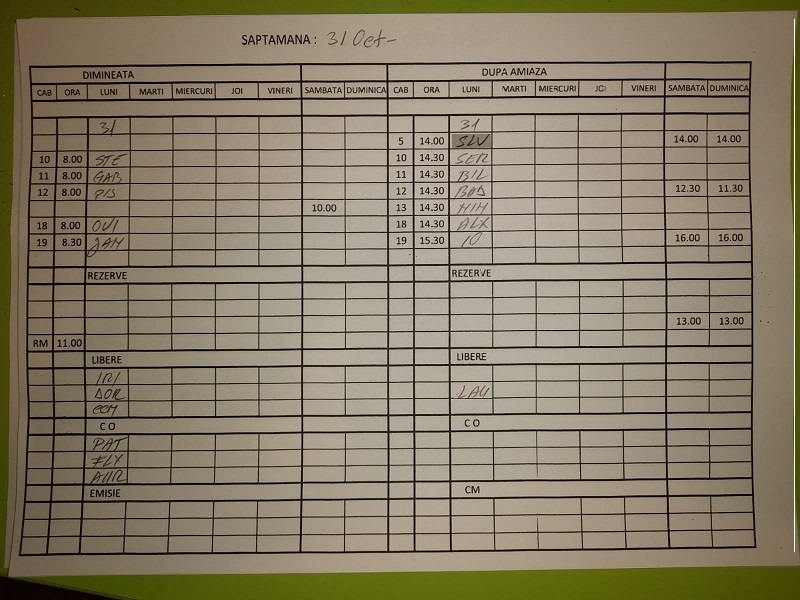 SAPTAMANA : 31 Oct-
DIMINEATA DUPA AMIAZA
CAB ORA LUNI MARTI MIERCURI JOI VINERI SAMBATA DUMINICA CAB ORA LUNI MARTI MIERCURI JOI VINERI SAMBATA DUMINICA
31 31
5 14.00 SLV 14.00 14.00
10 8.00 STE 10 14.30 SER
11 8.00 GAB 11 14.30 BIL
12 8.00 12 14.30 BOD 12.30 11.30
10.00 13 14.30 MIH
18 8.00 OVI 18 14.30 ALX
19 8.30 JAM 19 15.30 IO 16.00 16.00
REZERVE REZERVE
13.00 13.00
RM 11.00
LIBERE LIBERE
IRI
DOR LAU
C O C O
PAT
FLX
AUR
EMISIE CM